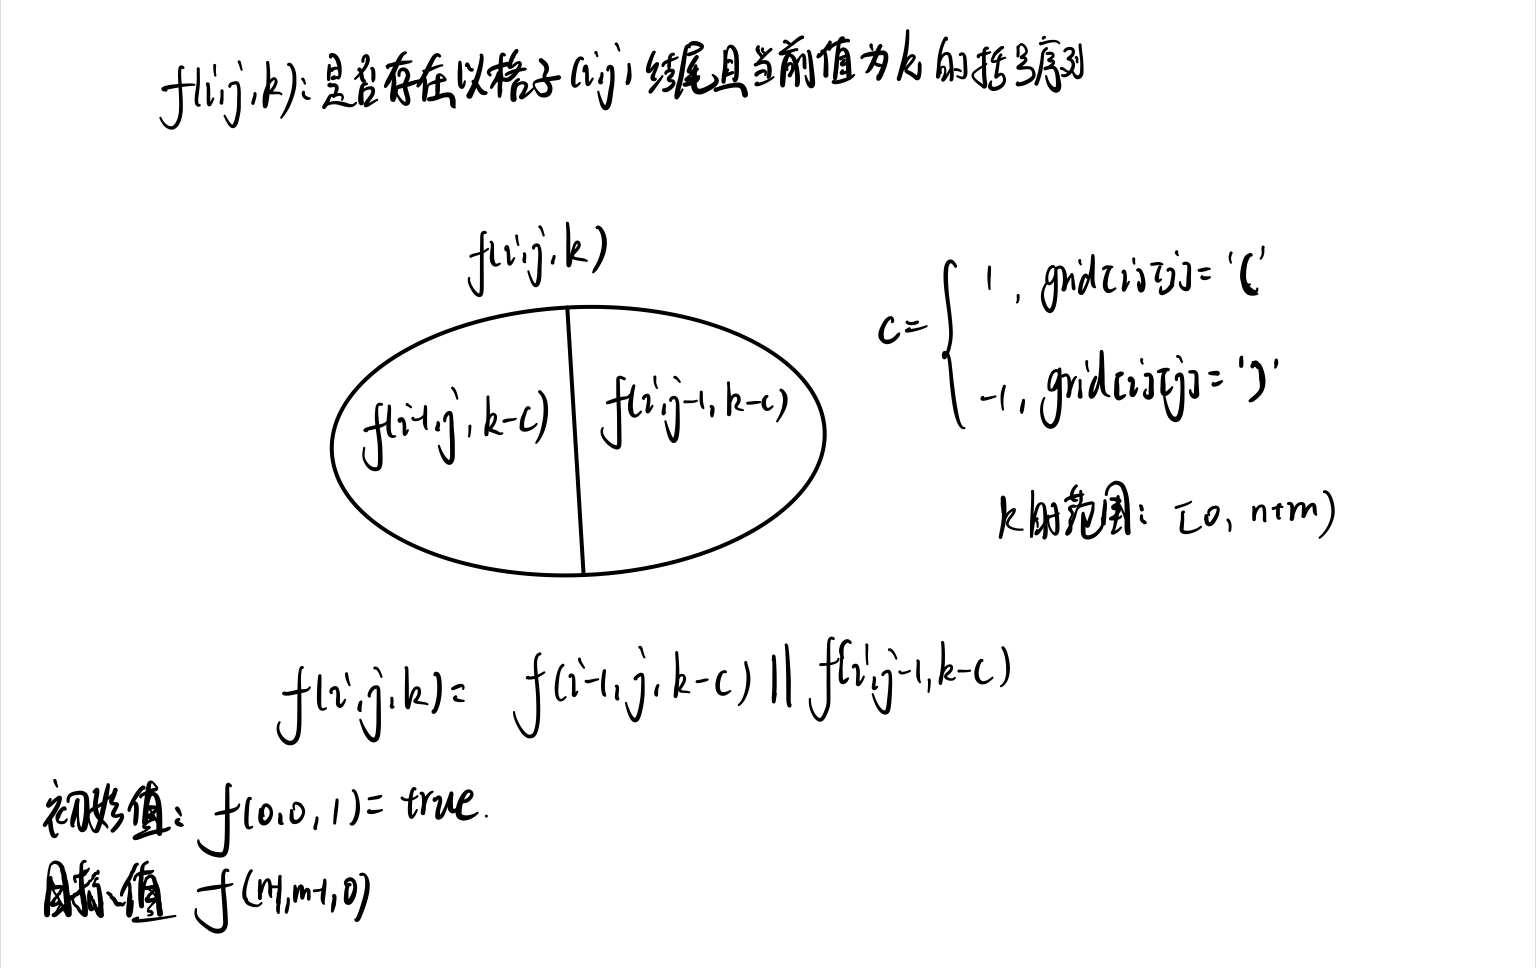 f(i,j,k):是否存在以格子(i,j)结尾且当前值为k的括号序列
f(i,j,k)
f(i-1,j,k-c)
f(i,j-1,k-c)
c= { 1, grid[i][j]='('
-1, grid[i][j]=')'
k的范围: [0, n+m)
f(i,j,k)= f(i-1,j,k-c) || f(i,j-1,k-c)
初始值: f(0,0,1)= true.
目标值 f(n-1,m-1,0)